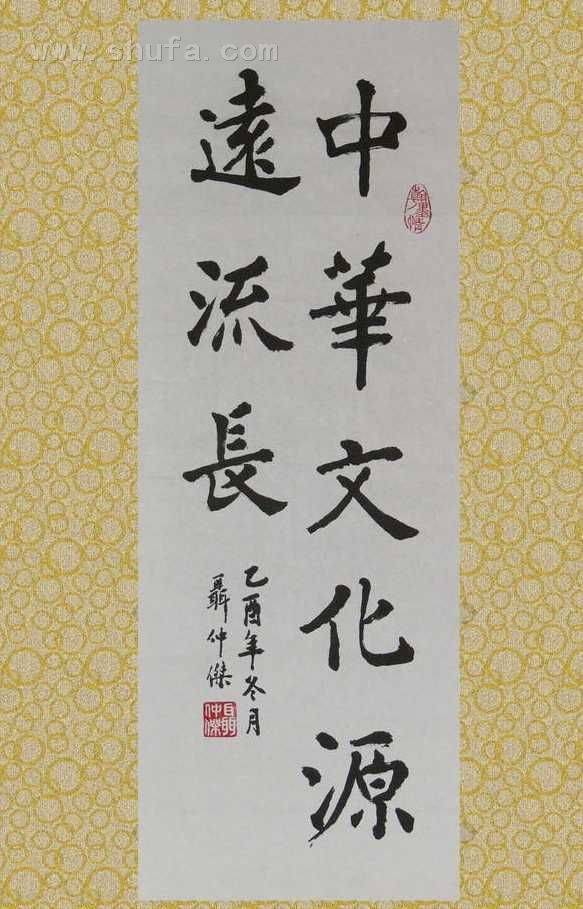 中華文化源
遠流長
乙酉年冬月
聶仲傑
www.shufa.com